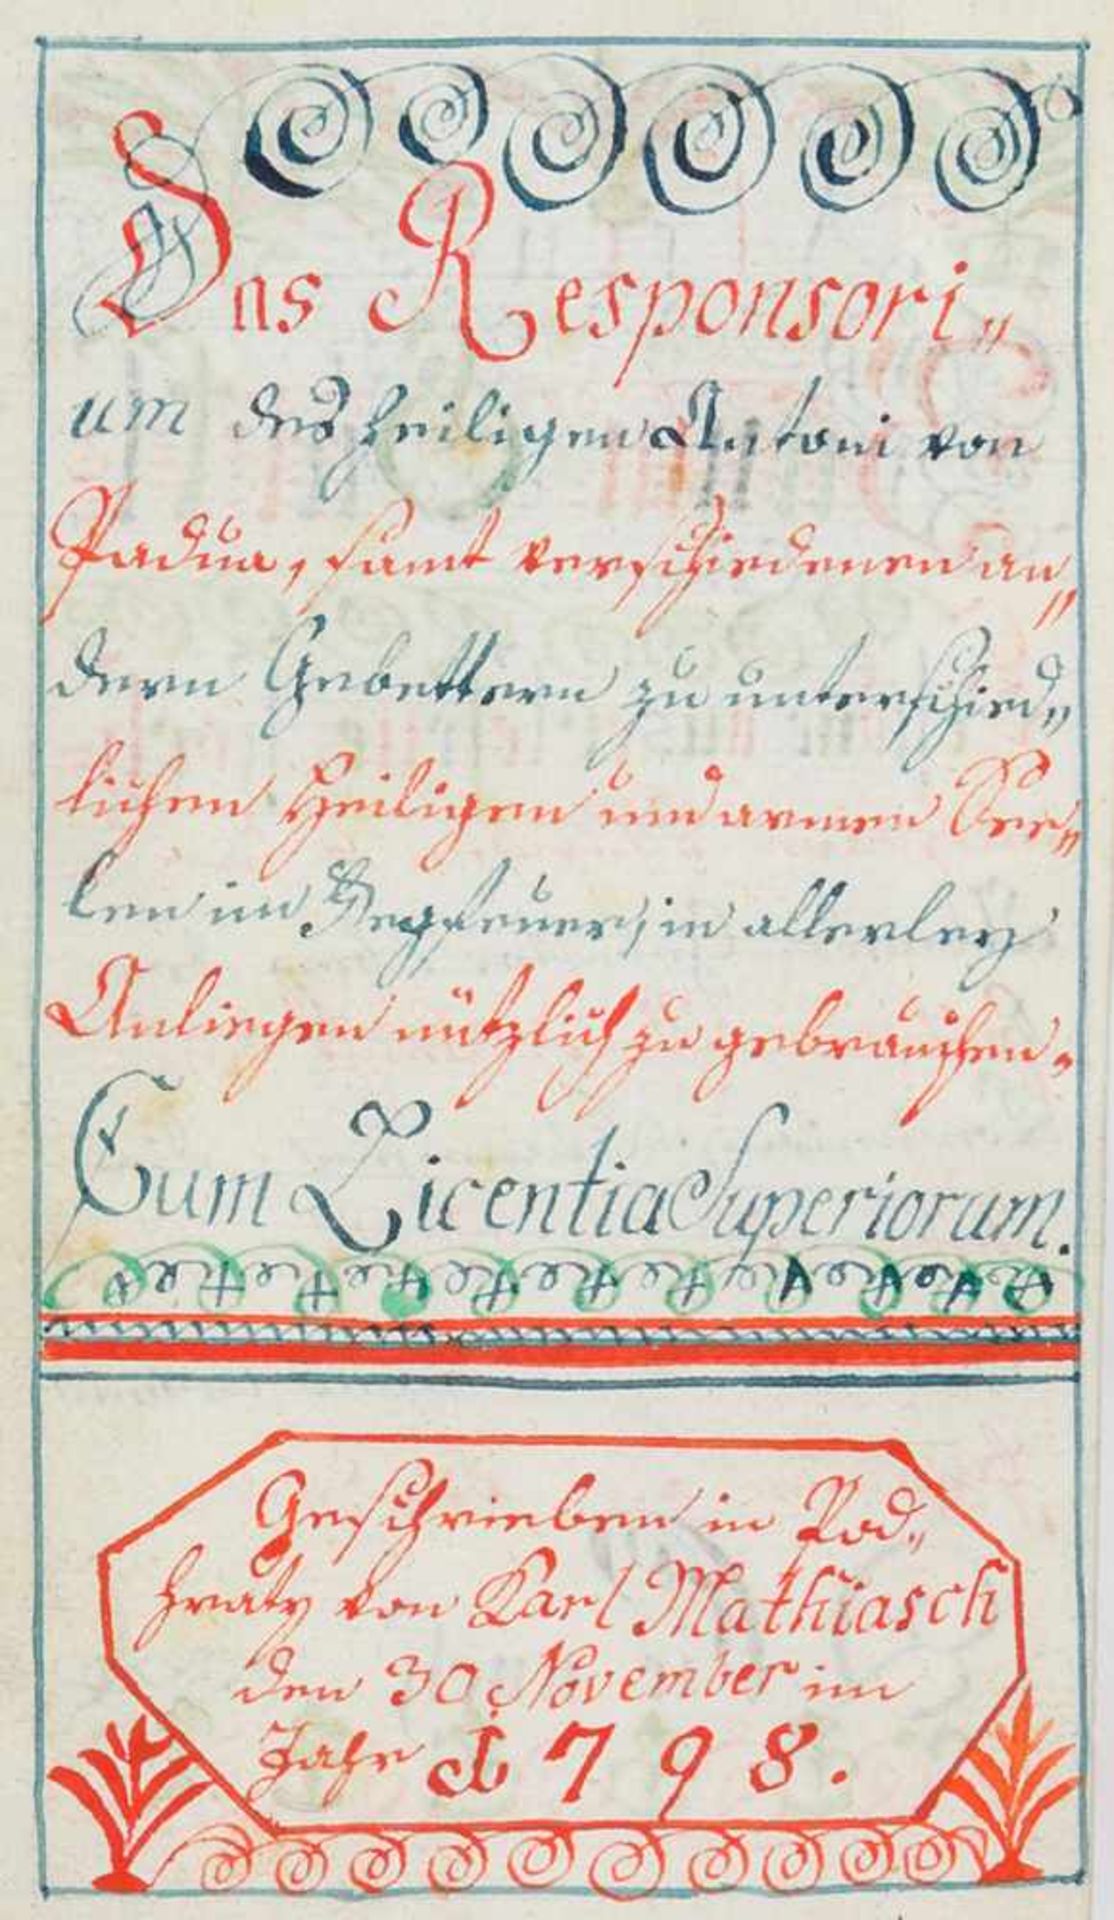 Das Responsori„
um des heiligen Antoni von
Padua, samt verschiedenen an„
dern Gebettern zu unterschied„
lichen Heiligen und armen See„
len im Fegfeuer, in allerley
Anliegen nützlich zu gebrauchen.
Cum Licentia Superiorum.
Geschrieben in Pod„
hraty von Karl Mathiasch
den 30 November im
Jahr 1798.